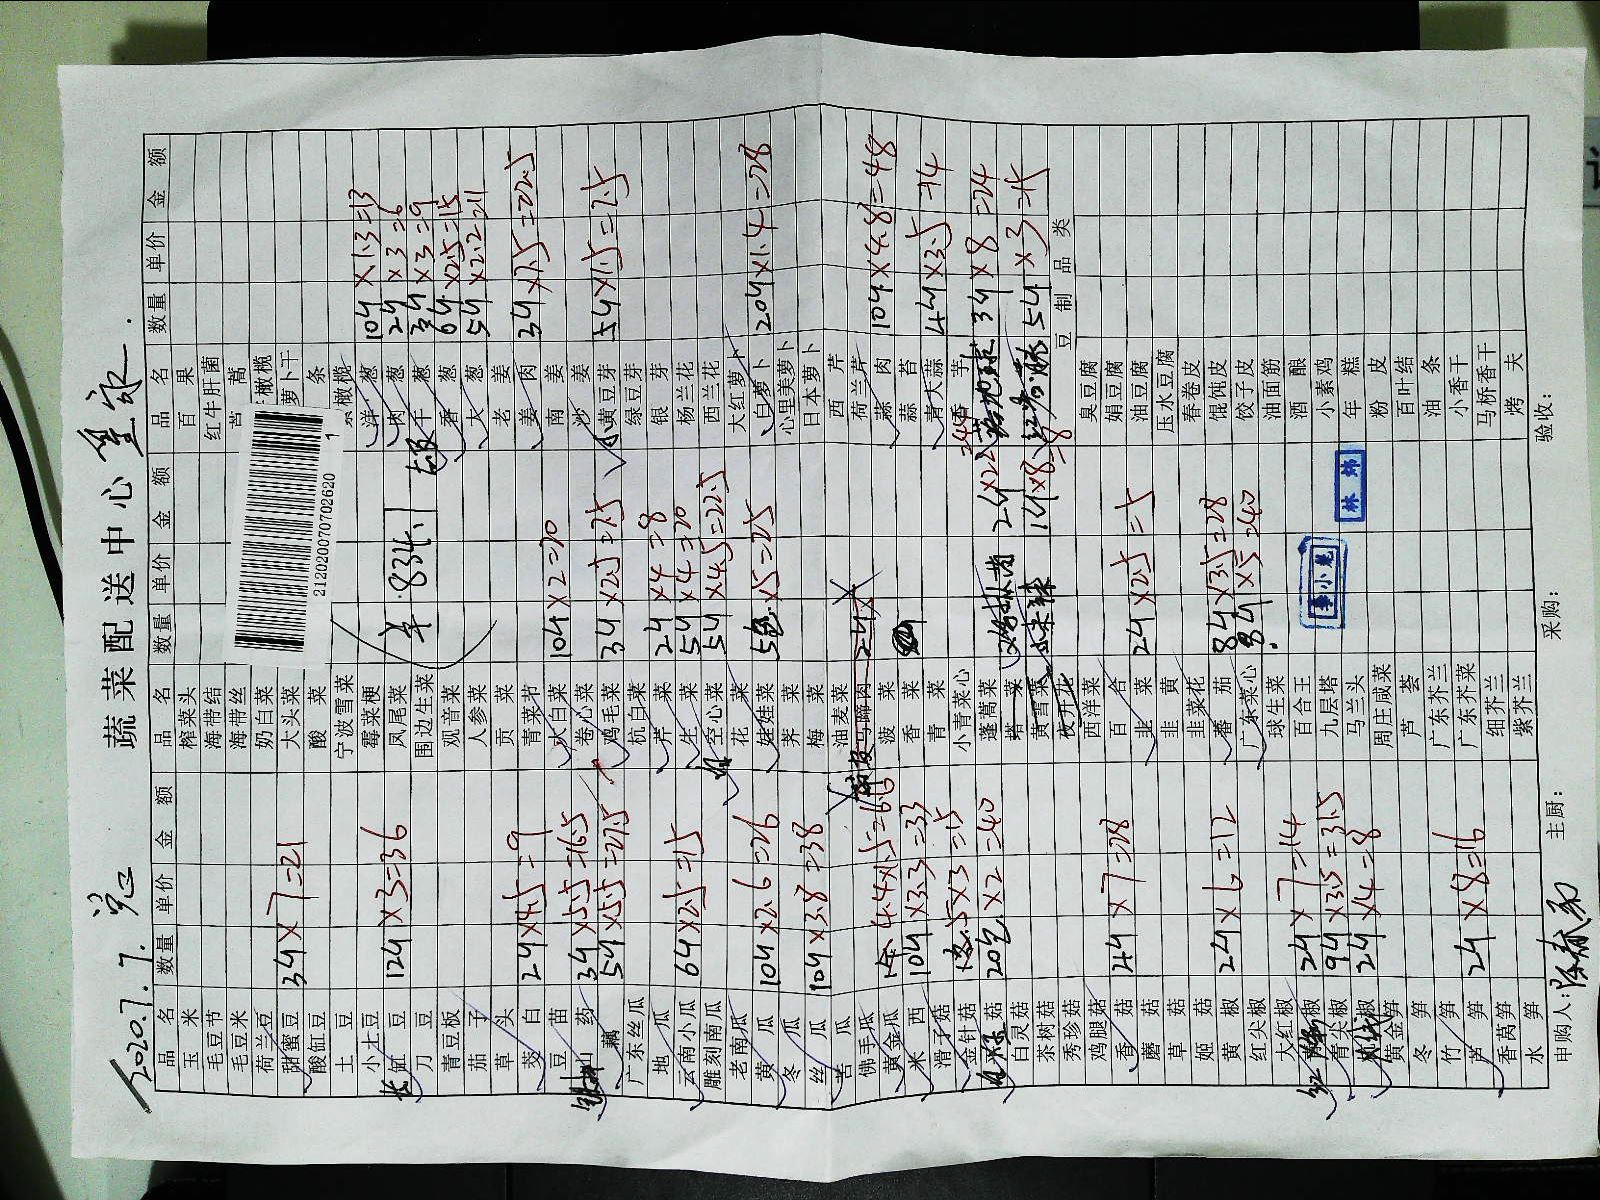 2020.7.7.
蔬菜配送中心
品名 数量 单价 金额 品名 数量 单价 金额 品名 数量 单价 金额
玉米 榨菜头 百果
毛豆节 海带结 红牛肝菌
毛豆米 海带丝 蒿
荷兰豆 奶白菜 橄榄
甜蜜豆 3斤×7=21 大头菜 萝卜干
酸缸豆 酸菜 条
土豆 宁波雪菜 橄榄
小土豆 霉菜梗 洋葱 10斤×1.3=13
长缸豆 12斤×3=36 凤尾菜 肉葱 2斤×3=6
刀豆 围边生菜 干葱 3斤×3=9
青豆板 观音菜 香葱 6斤×2.5=15
茄子 人参菜 大葱 5斤×2.2=11
草头 贡菜 老姜
茭白 2斤×4.5=9 青菜芯 姜肉 3斤×7.5=22.5
豆苗 大白菜 10斤×2=20 南姜
山药 3斤×5.5=16.5 卷心菜 沙姜
藕 5斤×5.5=27.5 鸡毛菜 3斤×2.5=7.5 小黄豆芽 5斤×1.5=7.5
广东丝瓜 杭白菜 绿豆芽
地瓜 芹菜 2斤×4=8 银芽
云南小瓜 6斤×2.5=15 生菜 5斤×4=20 杨兰花
雕刻南瓜 空心菜 5斤×4.5=22.5 西兰花
老南瓜 花菜 大红萝卜
黄瓜 10斤×2.6=26 娃娃菜 5包×5=25 白萝卜 20斤×1.4=28
冬瓜 荠菜 心里美萝卜
丝瓜 10斤×3.8=38 梅菜 日本萝卜
苦瓜 油麦菜 西芹
佛手瓜 马蹄肉 2斤× 荷兰芹
黄金瓜 4.4×1.5=6.6 菠菜 蒜肉 10斤×4.8=48
米西 10斤×3.3=33 香菜 蒜苔
滑子菇 青菜 青大蒜 4斤×3.5=14
金针菇 5×3=15 小青菜心 香芋
白灵菇 20包×2=40 蓬蒿菜 2斤×22=44 3斤×8=24
茶树菇 塔菜
秀珍菇 黄雪菜 小米辣 1斤×8=8 5斤×3=15
鸡腿菇 夜开花 豆制品类
香菇 4斤×7=28 西洋菜 臭豆腐
蘑菇 百合 媚豆腐
草菇 韭菜 2斤×2.5=5 油豆腐
姬菇 韭黄 压水豆腐
黄椒 2斤×6=12 韭菜花 春卷皮
红尖椒 番茄 8斤×3.5=28 馄饨皮
大红椒 广东菜心 8斤×5=40 饺子皮
2斤×7=14 球生菜 油面筋
青尖椒 9斤×3.5=31.5 百合王 酒酿
2斤×4=8 九层塔 小素鸡
黄金笋 马兰头 年糕
冬笋 周庄咸菜 粉皮
竹笋 芦荟 百叶结
芦笋 2斤×8=16 广东芥兰 油条
香莴笋 广东芥菜 小香干
水笋 细芥兰 马桥香干
紫芥兰 烤夫
¥:834.1
212020070702620
1
李小龙
林炜
申购人: 主厨: 采购: 验收: